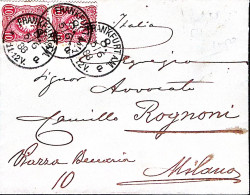 FRANKFURT
FRANKFURT A.M.
10
10
Italia
Egregio
Signor Avvocato
Camillo Rognoni
Piazza Beccaria
10
Milano